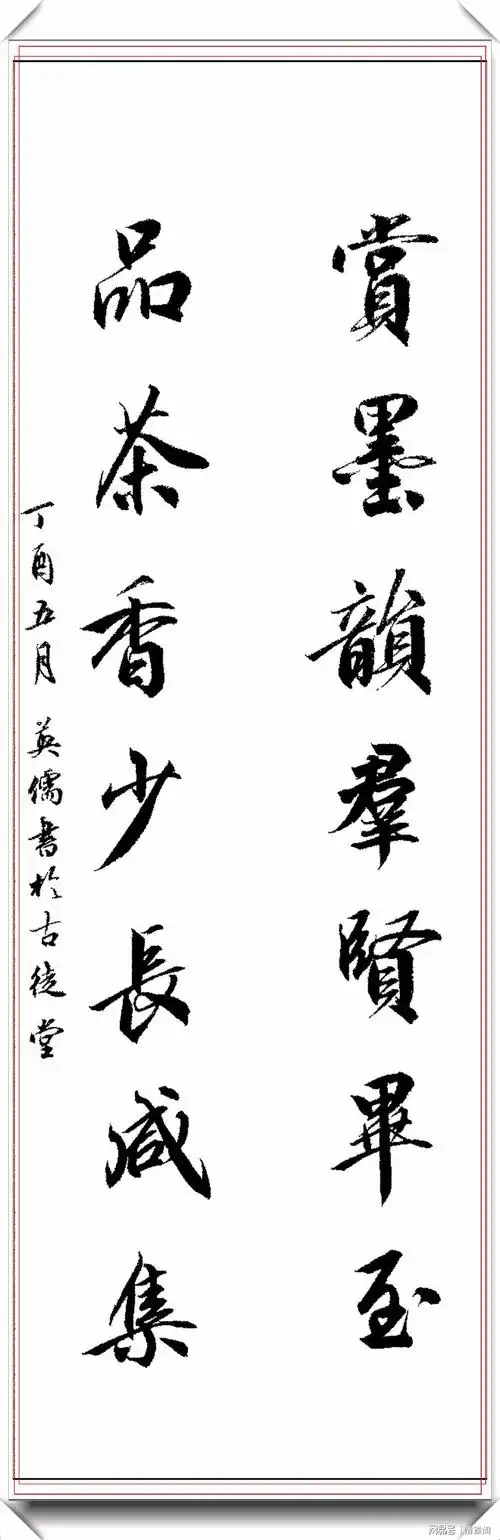 賞墨韻羣賢畢至
品茶香少長咸集
丁酉五月 英儒書於古徒堂
网易号 | 精雅阁